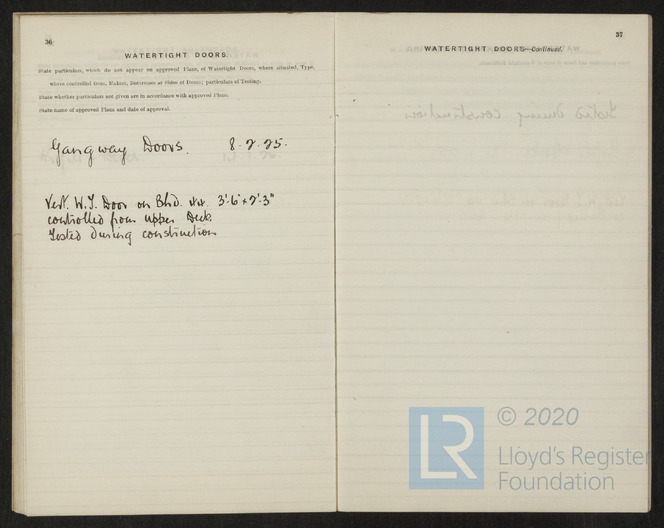 36
WATERTIGHT DOORS.
State particulars, which do not appear on approved Plans, of Watertight Doors, where situated, Type,
where controlled from, Makers, Sternmost or Sides of Doors; particulars of Testing.
State whether particulars not given are in accordance with approved Plans.
State name of approved Plans and date of approval.
Gangway Doors. 8.7.25.
Vert. W.T. Door on Bhd. 3'-6" x 7'-3"
controlled from upper Deck.
Tested During construction
37
WATERTIGHT DOORS—Continued.
LR
© 2020
Lloyd's Register
Foundation